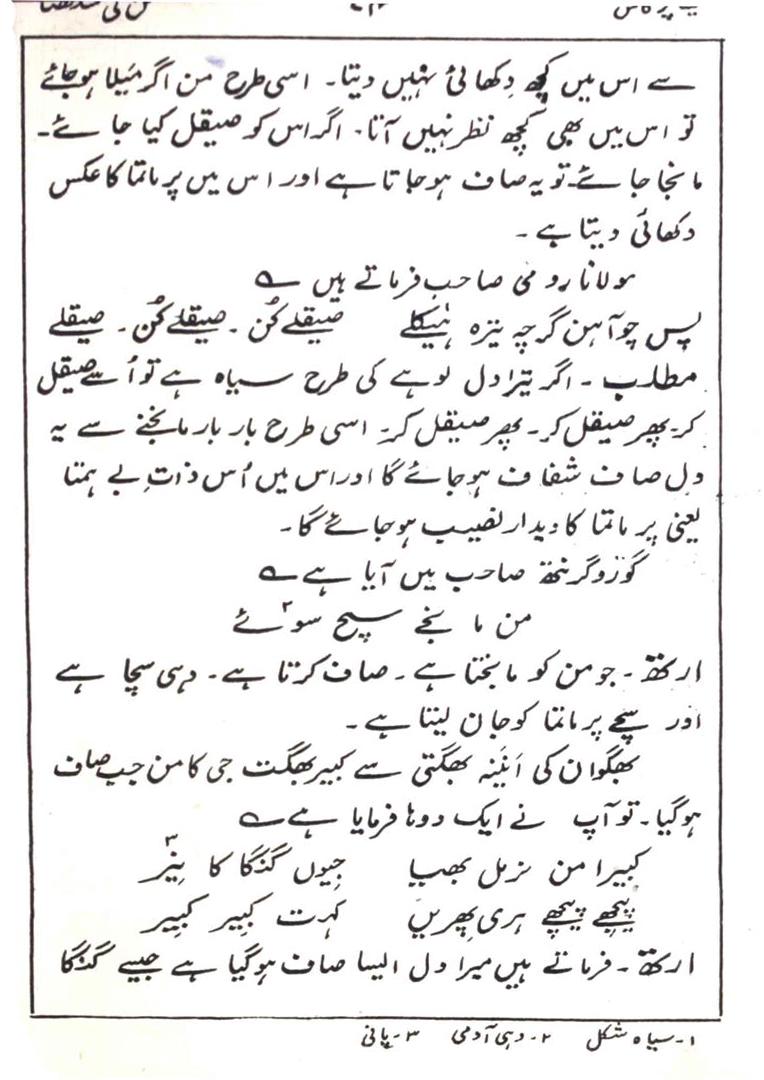 سے اس میں کچھ دِکھائی نہیں دیتا۔ اسی طرح من اگر مَیلا ہو جائے
تو اس میں بھی کچھ نظر نہیں آتا۔ اگر اس کو صیقل کیا جائے۔
مانجا جائے۔ تو یہ صاف ہو جاتا ہے اور اس میں پرماتما کا عکس
دکھائی دیتا ہے۔
مولانا رومی صاحب فرماتے ہیں ؎
پس چو آہن گرچہ تیرہ ہَیکلے۱ صیقلے کُن۔ صیقلے کُن۔ صیقلے
مطلب۔ اگر تیرا دل لوہے کی طرح سیاہ ہے تو اُسے صیقل
کر۔ پھر صیقل کر۔ پھر صیقل کر۔ اسی طرح بار بار مانجنے سے یہ
دِل صاف شفاف ہو جائے گا اور اس میں اُس ذاتِ بے ہمتا
یعنی پرماتما کا دیدار نصیب ہو جائے گا۔
گورو گرنتھ صاحب میں آیا ہے ؎
من مانجے سچ سوئے۲
ارتھ۔ جو من کو مانجتا ہے۔ صاف کرتا ہے۔ وہی سچا ہے
اور سچے پرماتما کو جان لیتا ہے۔
بھگوان کی اَنَنیہ بھگتی سے کبیر بھگت جی کا من جب صاف
ہو گیا۔ تو آپ نے ایک دوہا فرمایا ہے ؎
کبیرا من نرمل بھیا جیوں گنگا کا نِیر۳
پیچھے پیچھے ہری پھریں کہت کبیر کبیر
ارتھ۔ فرماتے ہیں میرا دل ایسا صاف ہو گیا ہے جیسے گنگا
۱۔ سیاہ شکل ۲۔ وہی آدمی ۳۔ پانی